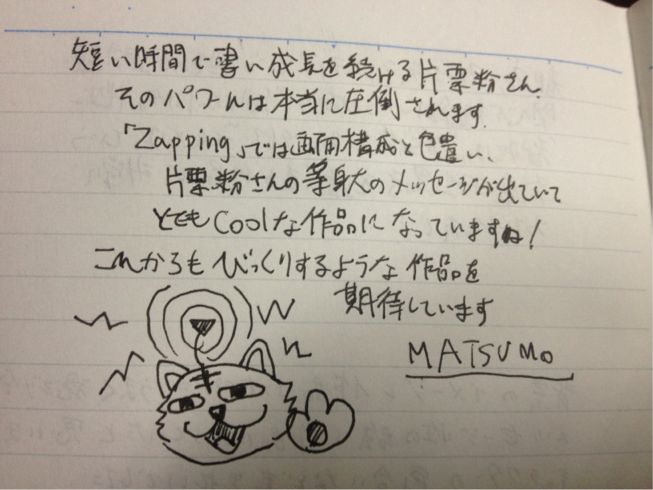 短い時間で凄い成長を続ける片栗粉さん
そのパワールは本当に圧倒されます.
「Zapping」では画面構成と色遣い、
片栗粉さんの等身大のメッセージが出ていて
とてもCoolな作品になっていますね!
これからもびっくりするような作品を
期待しています
MATSUMO